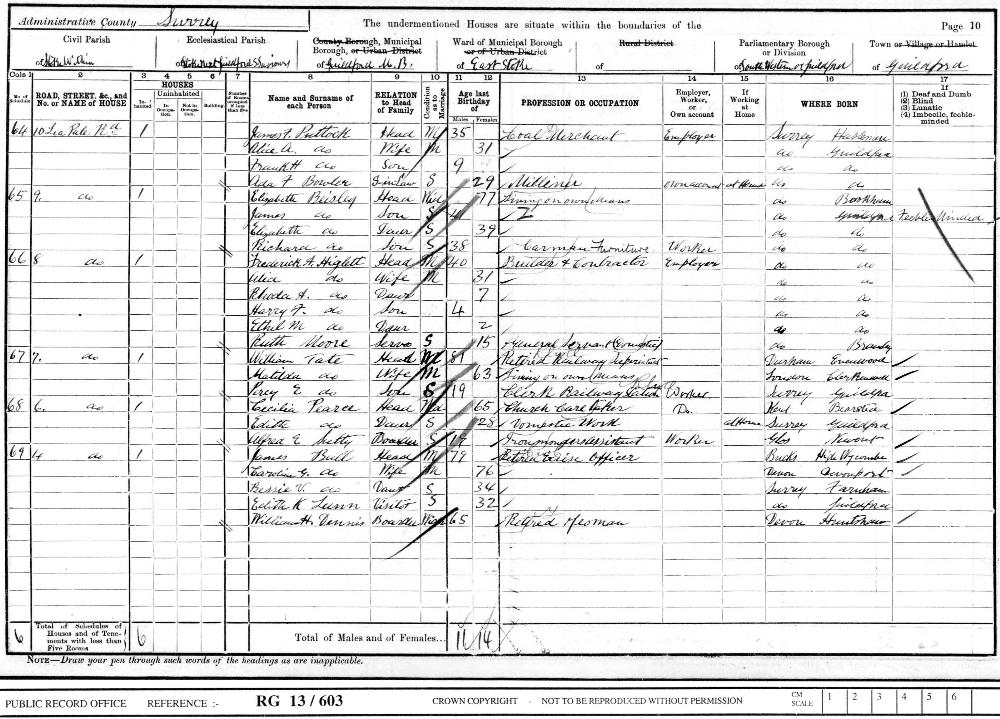 Administrative County Surrey The undermentioned Houses are situate within the boundaries of the Page 10
Civil Parish Ecclesiastical Parish County Borough, Municipal Borough, or Urban District Ward of Municipal Borough or of Urban District Rural District Parliamentary Borough or Division Town or Village or Hamlet
of of of Guildford M.B. of East Stoke of of of Guildford
Cols 1 2 3 4 5 6 7 8 9 10 11 12 13 14 15 16 17
No. of Schedule ROAD, STREET, &c., and No. or NAME of HOUSE HOUSES Inhabited Uninhabited In Occupation Not in Occupation Building Number of Rooms occupied if less than five Name and Surname of each Person RELATION to Head of Family Condition as to Marriage Age last Birthday of Males Females PROFESSION OR OCCUPATION Employer, Worker, or Own account If Working at Home WHERE BORN If (1) Deaf and Dumb (2) Blind (3) Lunatic (4) Imbecile, feeble-minded
64 10 Lea Pale Rd 1 James F. Puttock Head M 35 Coal Merchant Employer Surrey
Alice A. do Wife M 31 do Guildford
Frank H do Son 9 do do
Ada F Bowler S 29 Milliner own account at Home do do
65 9. do 1 Elizabeth Head Wid 77 Living on own means do Bookham
James do Son S do Feeble Minded
Elizabeth do Daur S 39 do do
Richard do Son S 38 Carman Furniture Worker do do
66 8 do 1 Frederick A. Higlett Head M 40 Builder & Contractor Employer do do
Alice do Wife M 31 do do
Rhoda A. do Daur 7 do do
Harry F. do Son 4 do do
Ethel M do Daur 2 do do
Ruth Moore Serv S 15 General Servant (Domestic) do
67 7. do 1 William Tate Head M 81 Retired Railway Durham Evenwood
Matilda do Wife M 63 Living on own means London Clerkenwell
Percy E do Son S 19 Clerk Railway Worker Surrey Guildford
68 6. do 1 Cecilia Pearce Head Wd 65 Church Caretaker Do. Kent Bearsted
Edith do Daur S 28 Domestic Work at Home Surrey Guildford
Alfred E Boarder S Ironmongers assistant Worker Glos Newent
69 4 do 1 James Bull Head M 79 Officer Bucks High Wycombe
Caroline G. do Wife M 76 Devon Devonport
Bessie V. do Daur S 34 Surrey Farnham
Edith K Lunn Visitor S 32 do Guildford
William H. Dennis Boarder 65 Retired Yeoman Devon Huntshaw
6 Total of Schedules of Houses and of Tenements with less than Five Rooms 6 Total of Males and of Females... 11 14
NOTE—Draw your pen through such words of the headings as are inapplicable.
PUBLIC RECORD OFFICE REFERENCE :- RG 13 / 603 CROWN COPYRIGHT - NOT TO BE REPRODUCED WITHOUT PERMISSION CM SCALE 1 2 3 4 5 6